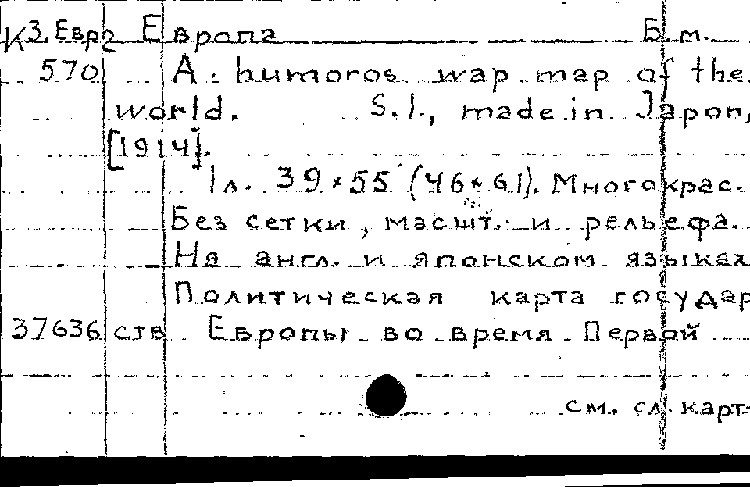 К3.Евр2 Европа Б.м.
570 A. humoros wap map of the
world. S.l., made in Japon,
[1914].
1л. 39×55 (46×61). Многокрас.
Без сетки, масшт. и рельефа.
На англ. и японском языках
Политическая карта государ
37636 ств Европы во время Первой
см. сл. карт